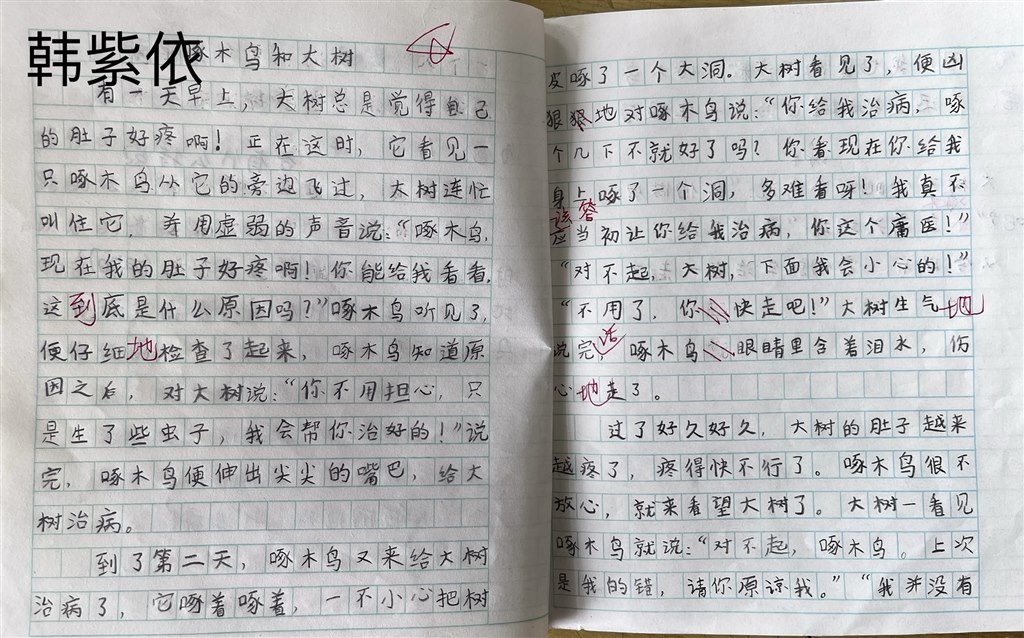 韩紫依
啄木鸟和大树
有一天早上，大树总是觉得自己
的肚子好疼啊！正在这时，它看见一
只啄木鸟从它的旁边飞过，大树连忙
叫住它，并用虚弱的声音说：“啄木鸟，
现在我的肚子好疼啊！你能给我看看，
这到底是什么原因吗？”啄木鸟听见了，
便仔细地检查了起来，啄木鸟知道原
因之后，对大树说：“你不用担心，只
是生了些虫子，我会帮你治好的！”说
完，啄木鸟便伸出尖尖的嘴巴，给大
树治病。
到了第二天，啄木鸟又来给大树
治病了，它啄着啄着，一不小心把树
皮啄了一个大洞。大树看见了，便凶
狠狠地对啄木鸟说：“你给我治病，啄
个几下不就好了吗？你看现在你给我
身上啄了一个洞，多难看呀！我真不
该答应当初让你给我治病，你这个庸医！”
“对不起，大树，下面我会小心的！”
“不用了，你快走吧！”大树生气地
说完话啄木鸟眼睛里含着泪水，伤
心地走了。
过了好久好久，大树的肚子越来
越疼了，疼得快不行了。啄木鸟很不
放心，就来看望大树了。大树一看见
啄木鸟就说：“对不起，啄木鸟。上次
是我的错，请你原谅我。”“我并没有